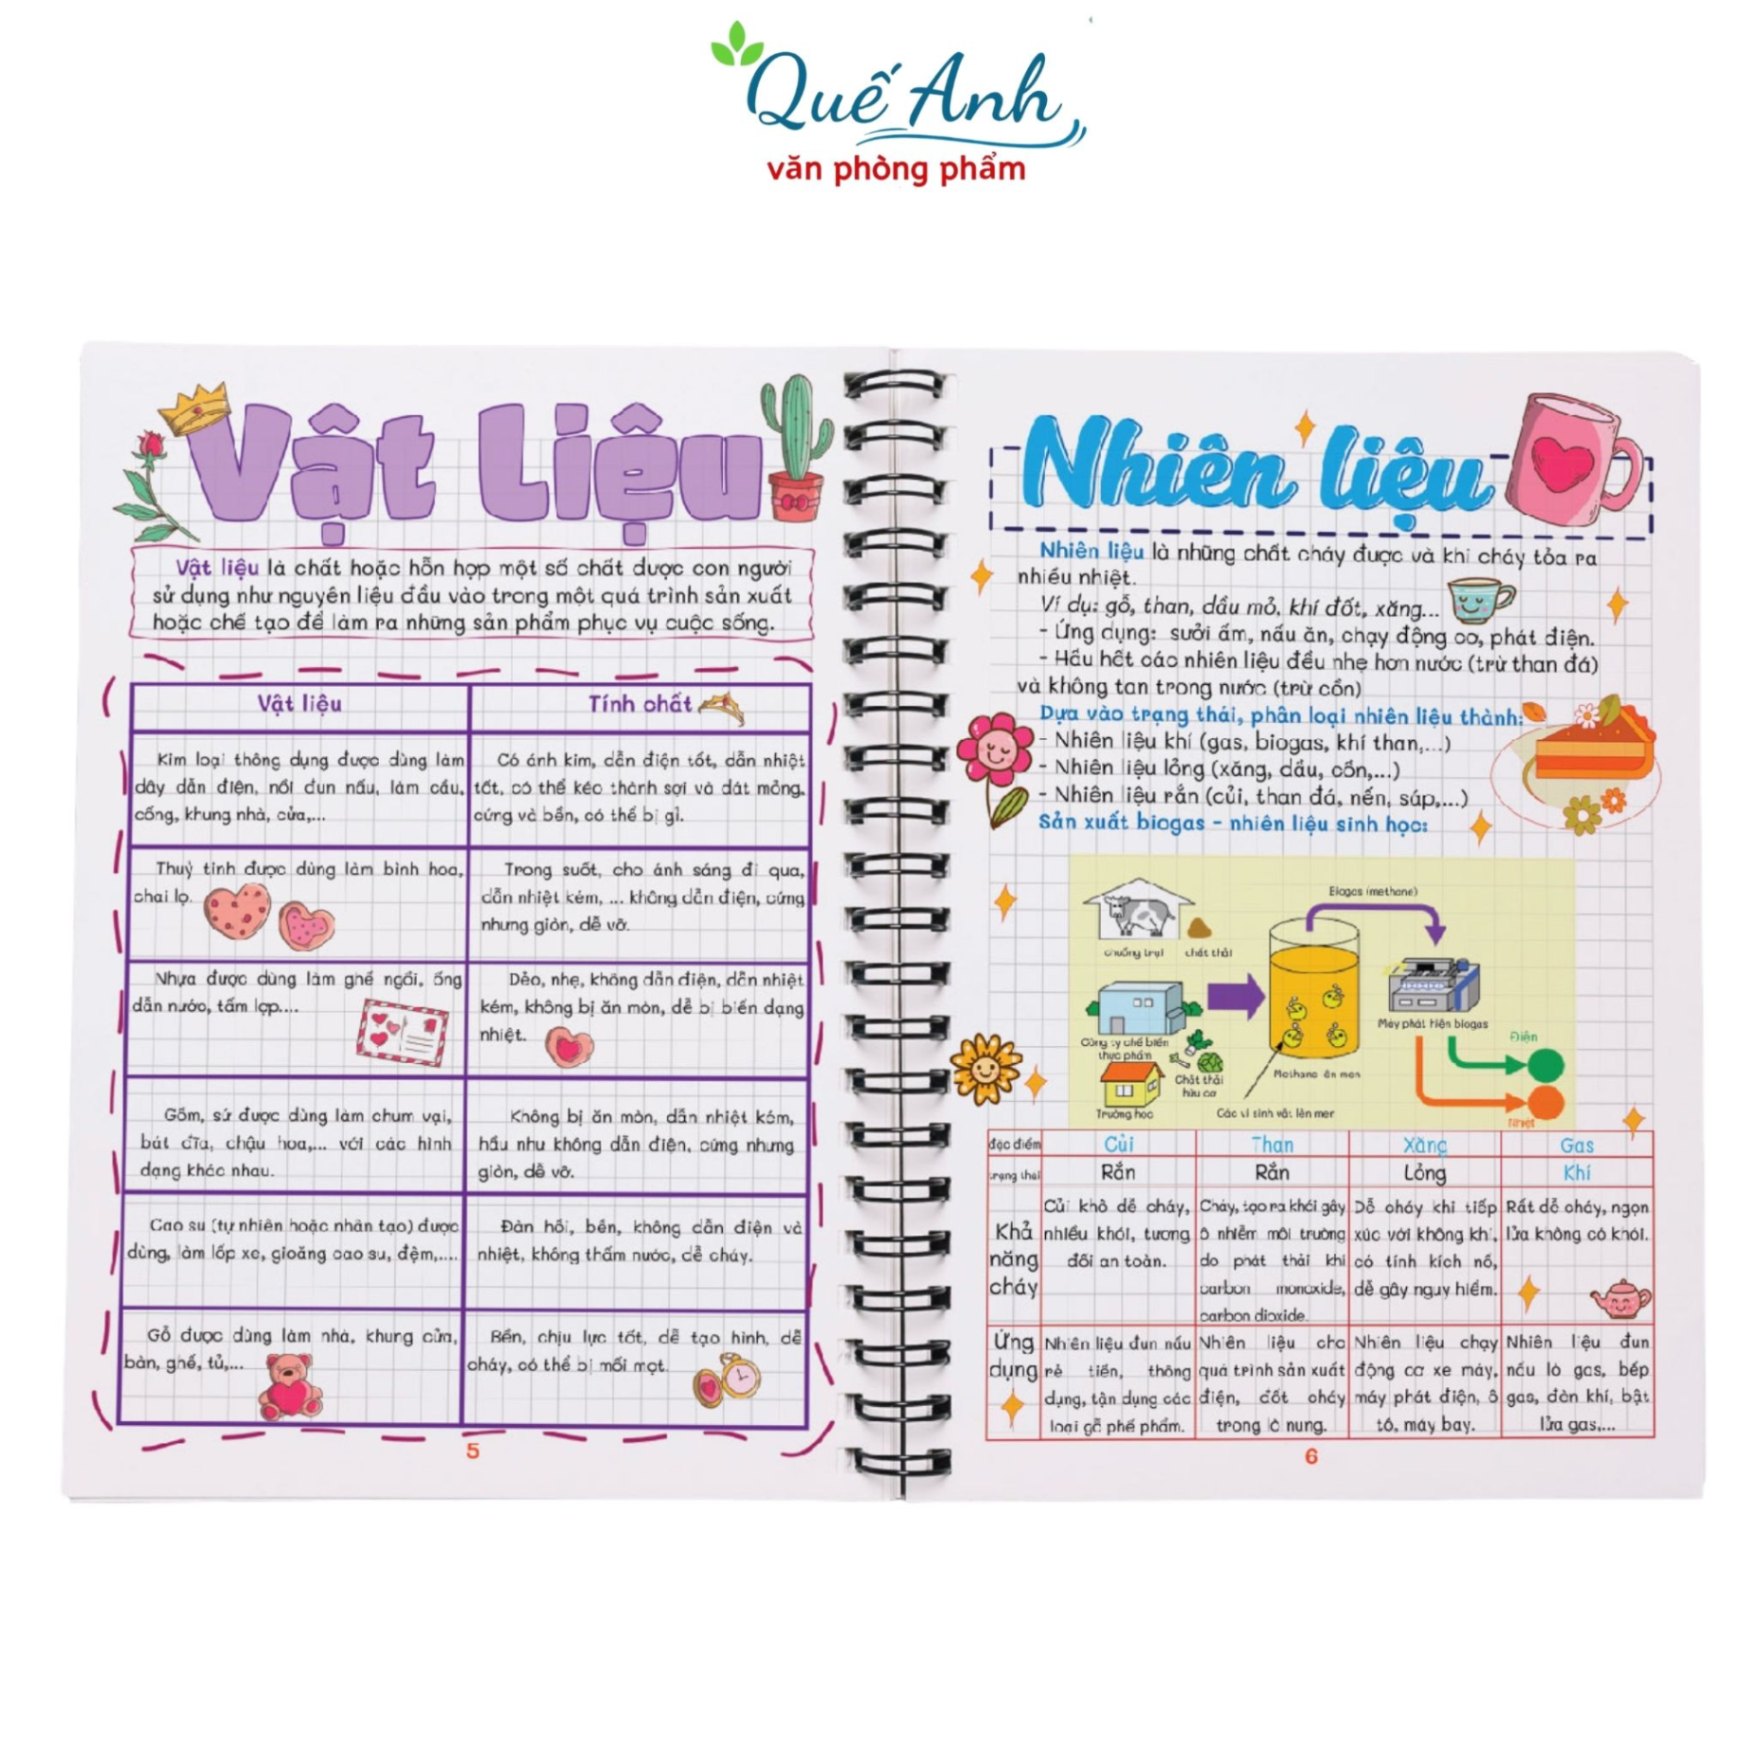 Quế Anh
văn phòng phẩm
Vật Liệu
Vật liệu là chất hoặc hỗn hợp một số chất được con người
sử dụng như nguyên liệu đầu vào trong một quá trình sản xuất
hoặc chế tạo để làm ra những sản phẩm phục vụ cuộc sống.
Vật liệu
Tính chất
Kim loại thông dụng được dùng làm
dây dẫn điện, nồi đun nấu, làm cầu,
cống, khung nhà, cửa,...
Có ánh kim, dẫn điện tốt, dẫn nhiệt
tốt, có thể kéo thành sợi và dát mỏng,
cứng và bền, có thể bị gỉ.
Thuỷ tinh được dùng làm bình hoa,
chai lọ.
Trong suốt, cho ánh sáng đi qua,
dẫn nhiệt kém, ... không dẫn điện, cứng
nhưng giòn, dễ vỡ.
Nhựa được dùng làm ghế ngồi, ống
dẫn nước, tấm lợp....
Dẻo, nhẹ, không dẫn điện, dẫn nhiệt
kém, không bị ăn mòn, dễ bị biến dạng
nhiệt.
Gốm, sứ được dùng làm chum vại,
bát đĩa, chậu hoa,... với các hình
dạng khác nhau.
Không bị ăn mòn, dẫn nhiệt kém,
hầu như không dẫn điện, cứng nhưng
giòn, dễ vỡ.
Cao su (tự nhiên hoặc nhân tạo) được
dùng, làm lốp xe, gioăng cao su, đệm,....
Đàn hồi, bền, không dẫn điện và
nhiệt, không thấm nước, dễ cháy.
Gỗ được dùng làm nhà, khung cửa,
bàn, ghế, tủ,...
Bền, chịu lực tốt, dễ tạo hình, dễ
cháy, có thể bị mối mọt.
5
Nhiên liệu
Nhiên liệu là những chất cháy được và khi cháy tỏa ra
nhiều nhiệt.
Ví dụ: gỗ, than, dầu mỏ, khí đốt, xăng...
- Ứng dụng: sưởi ấm, nấu ăn, chạy động cơ, phát điện.
- Hầu hết các nhiên liệu đều nhẹ hơn nước (trừ than đá)
và không tan trong nước (trừ cồn)
Dựa vào trạng thái, phân loại nhiên liệu thành:
- Nhiên liệu khí (gas, biogas, khí than,...)
- Nhiên liệu lỏng (xăng, dầu, cồn,...)
- Nhiên liệu rắn (củi, than đá, nến, sáp,...)
Sản xuất biogas - nhiên liệu sinh học:
Biogas (methane)
chuồng trại
chất thải
Công ty chế biến
thực phẩm
Chất thải
hữu cơ
Trường học
Methane ên men
Các vi sinh vật lên men
Máy phát hiện biogas
Điện
Nhiệt
đặc điểm
Củi
Than
Xăng
Gas
trạng thái
Rắn
Rắn
Lỏng
Khí
Khả
năng
cháy
Củi khô dễ cháy,
nhiều khói, tương
đối an toàn.
Cháy, tạo ra khói gây
ô nhiễm môi trường
do phát thải khí
carbon monoxide,
carbon dioxide.
Dễ cháy khi tiếp
xúc với không khí,
có tính kích nổ,
dễ gây nguy hiểm.
Rất dễ cháy, ngọn
lửa không có khói.
Ứng
dụng
Nhiên liệu đun nấu
rẻ tiền, thông
dụng, tận dụng các
loại gỗ phế phẩm.
Nhiên liệu cho
quá trình sản xuất
điện, đốt cháy
trong lò nung.
Nhiên liệu chạy
động cơ xe máy,
máy phát điện, ô
tô, máy bay.
Nhiên liệu đun
nấu lò gas, bếp
gas, đèn khí, bật
lửa gas,...
6